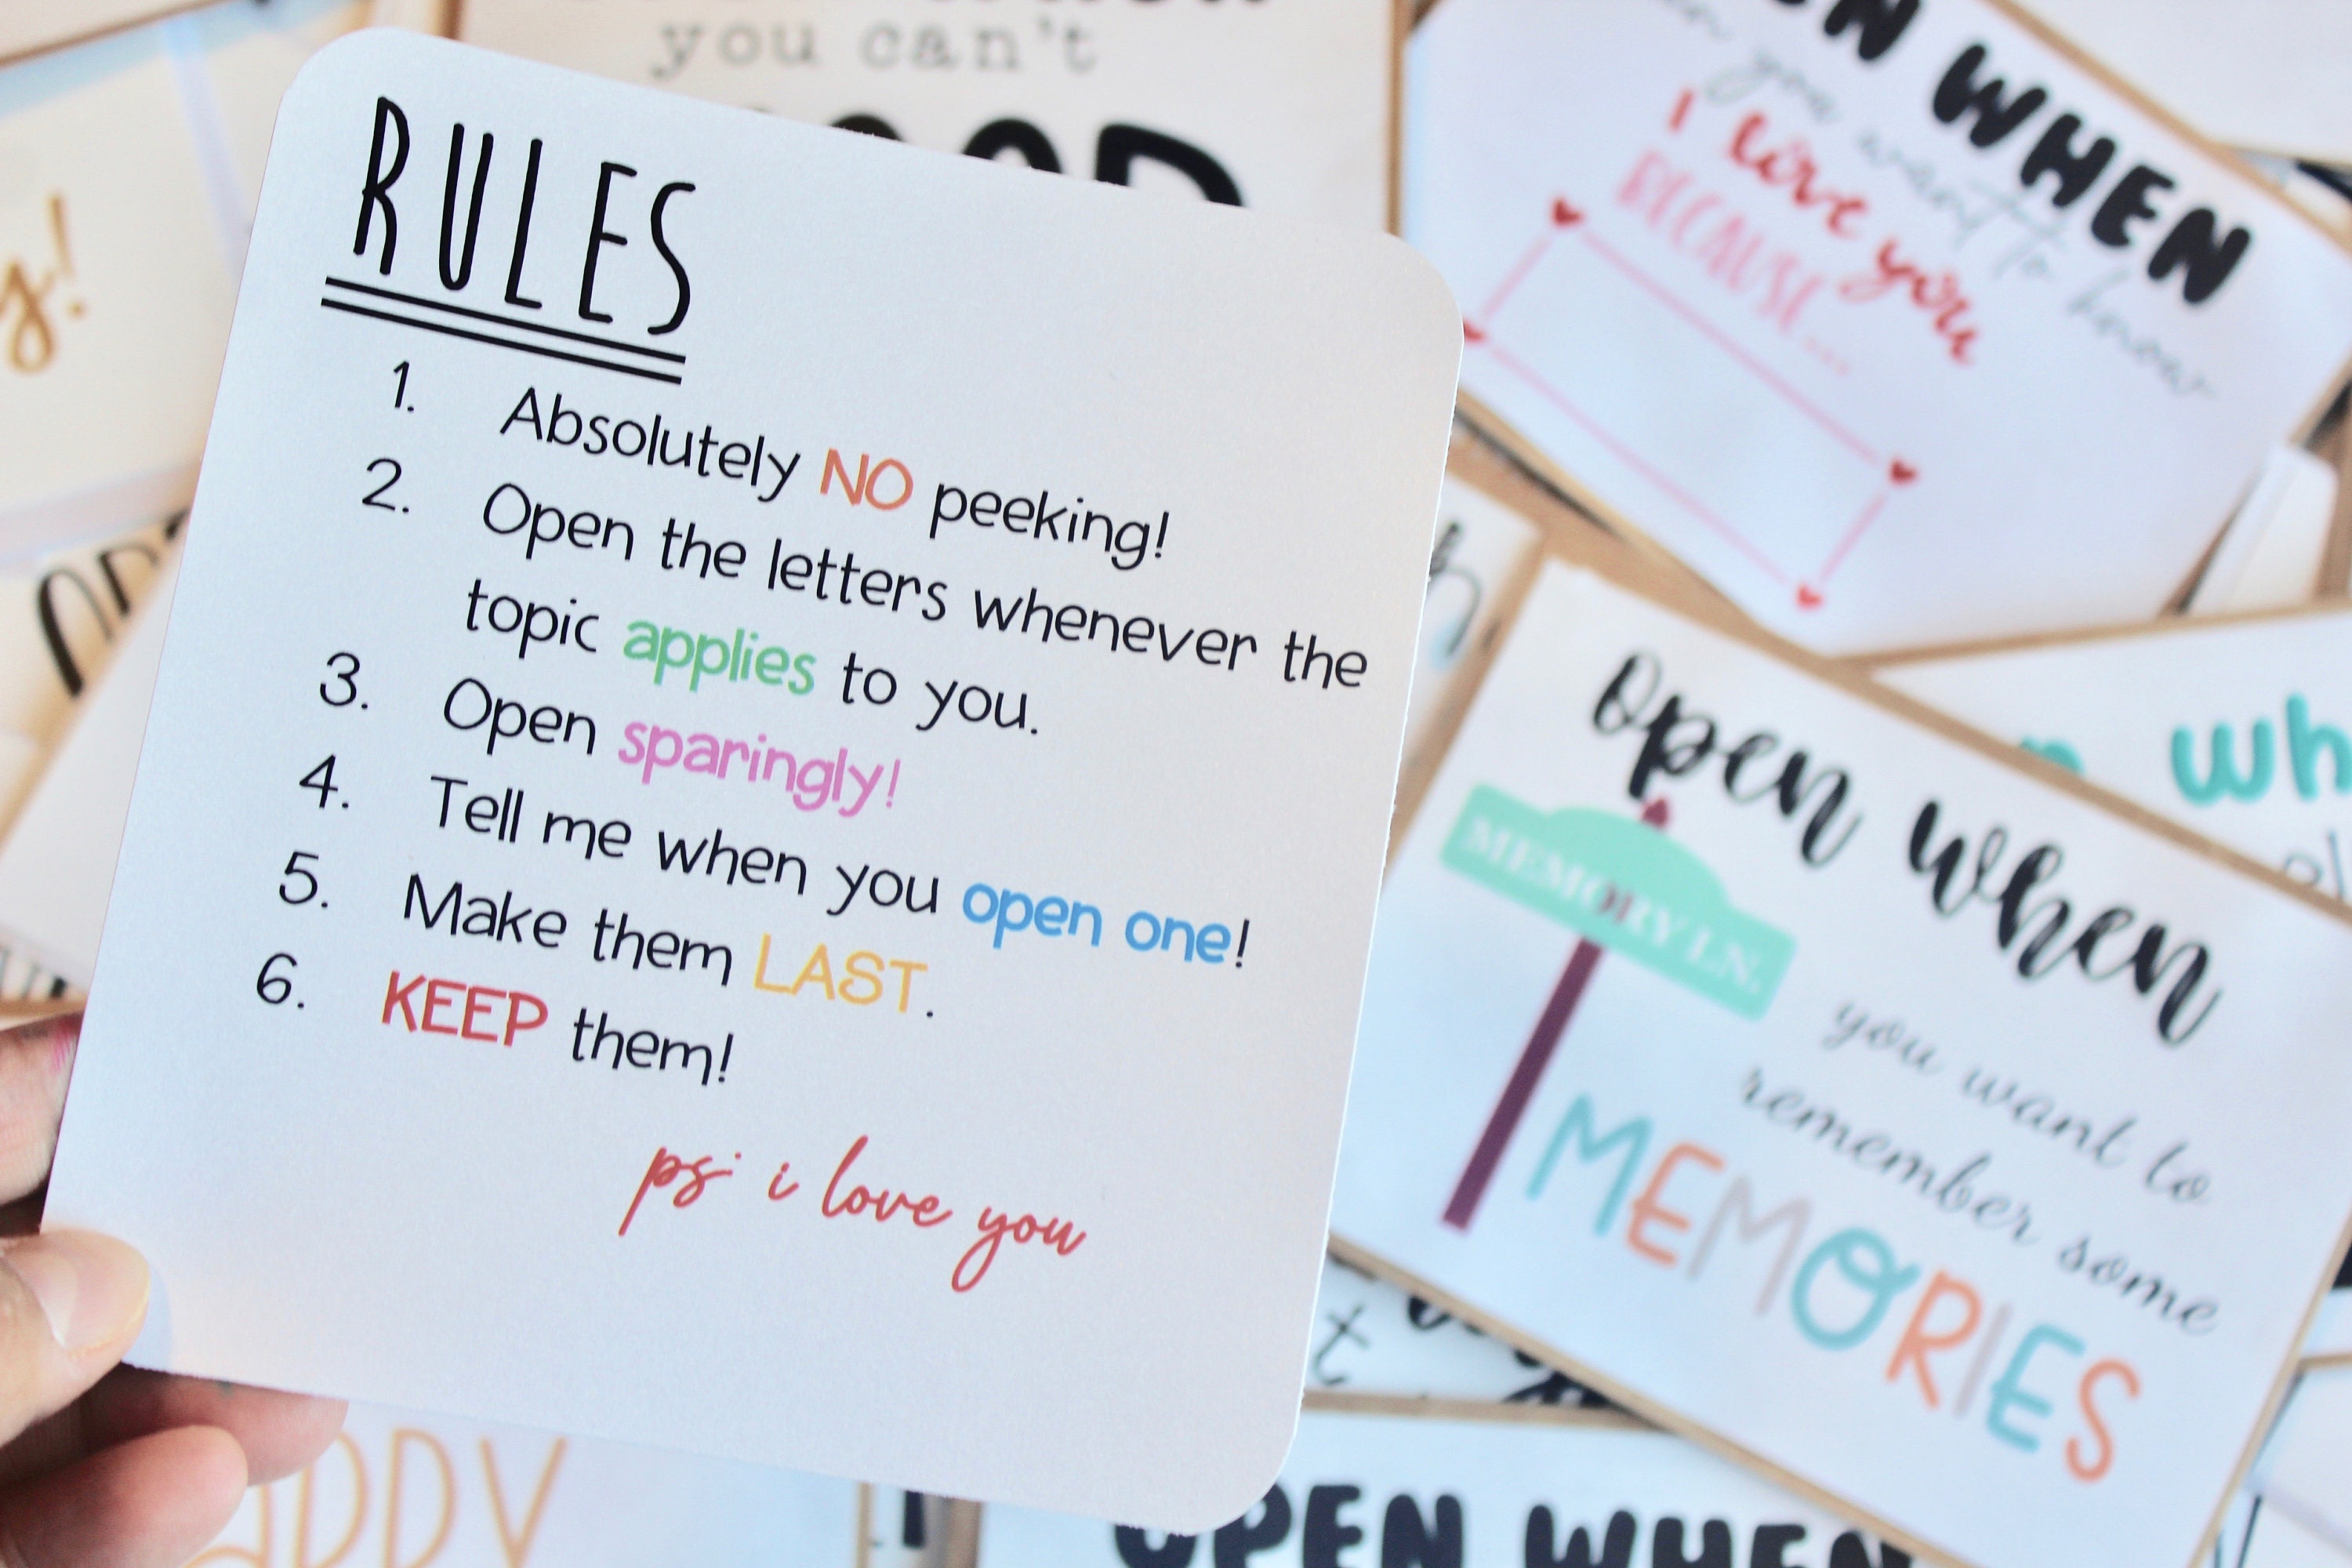 RULES
1. Absolutely NO peeking!
2. Open the letters whenever the
topic applies to you.
3. Open sparingly!
4. Tell me when you open one!
5. Make them LAST.
6. KEEP them!
ps. i love you
you can't
WHEN
you want to know
I love you
BECAUSE...
open when
MEMORY LN.
you want to
remember some
MEMORIES
OPEN WHEN